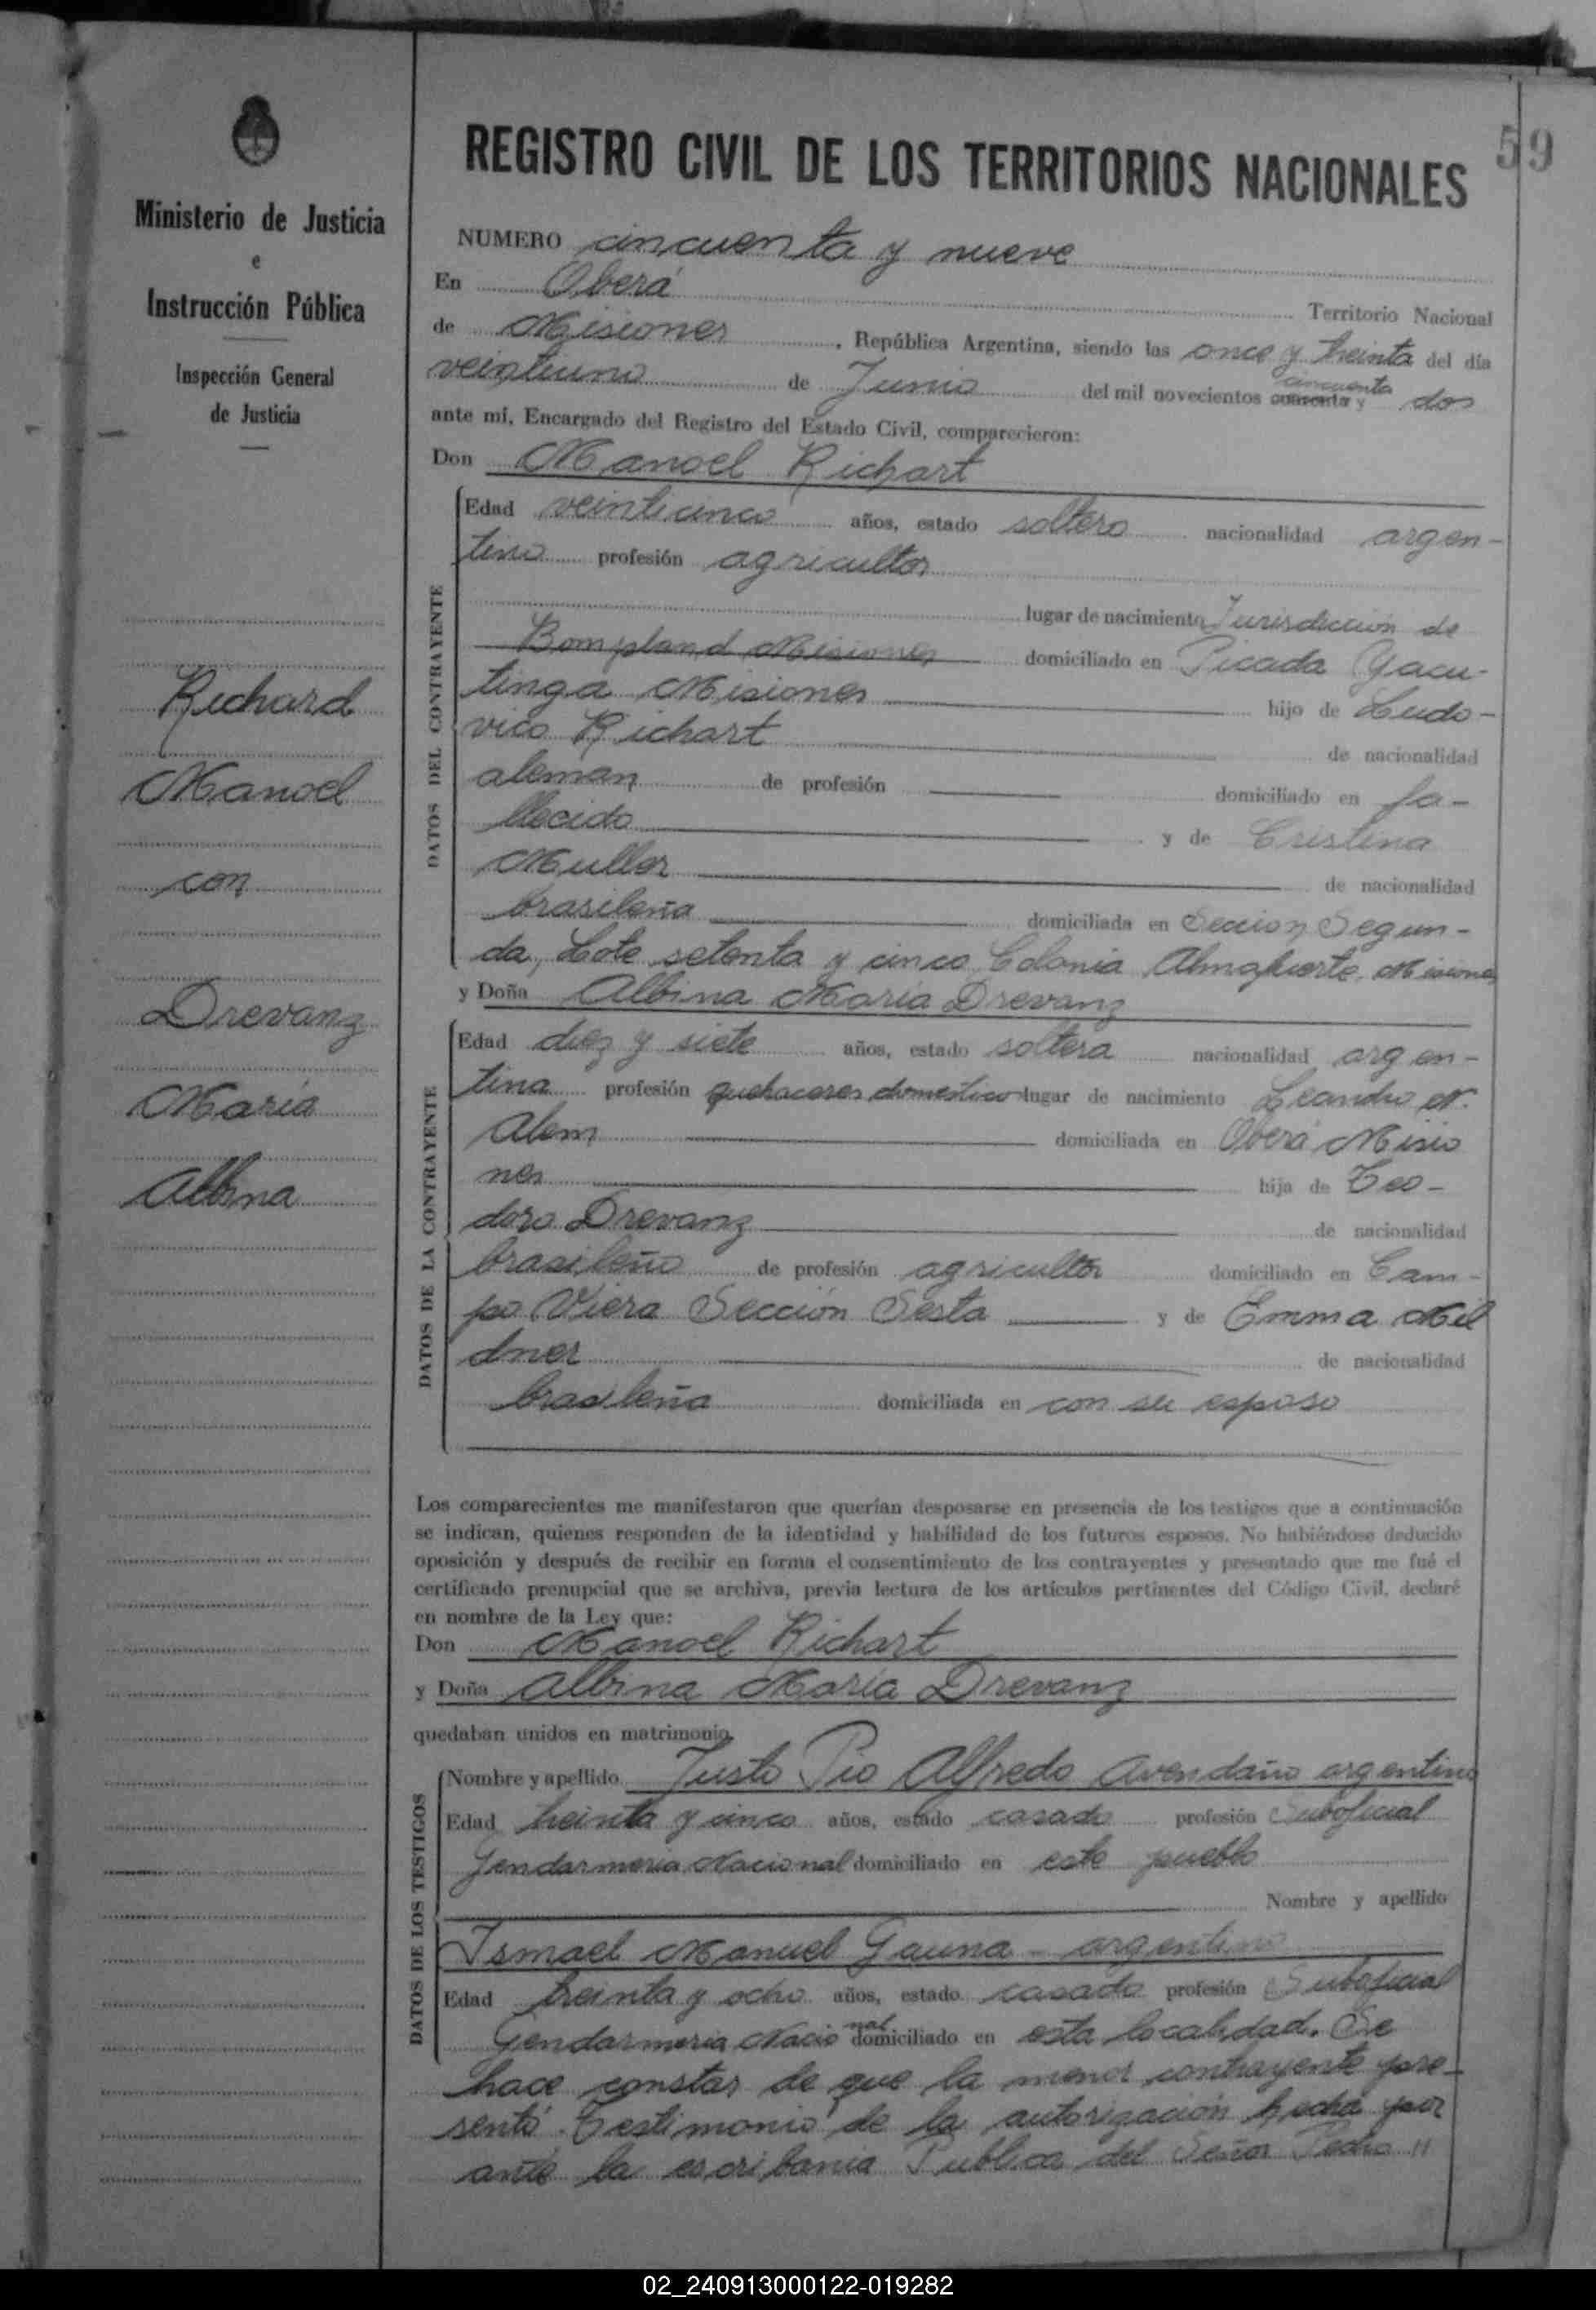 59
Ministerio de Justicia
e
Instrucción Pública
Inspección General
de Justicia
Richard
Manoel
con
Drevanz
María
Albina
REGISTRO CIVIL DE LOS TERRITORIOS NACIONALES
NUMERO cincuenta y nueve
En Oberá Territorio Nacional
de Misiones, República Argentina, siendo las once y treinta del día
veintiuno de Junio del mil novecientos cuarenta y cincuenta dos
ante mí, Encargado del Registro del Estado Civil, comparecieron:
Don Manoel Richart
DATOS DEL CONTRAYENTE
Edad veinticinco años, estado soltero nacionalidad argen-
tino profesión agricultor
lugar de nacimiento Jurisdicción de
Bompland Misiones domiciliado en Picada Yacu-
tinga Misiones hijo de Ludo-
vico Richart de nacionalidad
aleman de profesión domiciliado en fa-
llecido y de Cristina
Muller de nacionalidad
brasileña domiciliada en Seccion Segun-
da, Lote setenta y cinco Colonia Almafuerte, Misiones
y Doña Albina María Drevanz
DATOS DE LA CONTRAYENTE
Edad diez y siete años, estado soltera nacionalidad argen-
tina profesión quehaceres domestico lugar de nacimiento Leandro N.
Alem domiciliada en Oberá Misio
nes hija de Teo-
doro Drevanz de nacionalidad
brasileño de profesión agricultor domiciliado en Cam-
po Viera Sección Sesta y de Emma Mil
dner de nacionalidad
brasileña domiciliada en con su esposo
Los comparecientes me manifestaron que querían desposarse en presencia de los testigos que a continuación
se indican, quienes responden de la identidad y habilidad de los futuros esposos. No habiéndose deducido
oposición y después de recibir en forma el consentimiento de los contrayentes y presentado que me fué el
certificado prenupcial que se archiva, previa lectura de los artículos pertinentes del Código Civil, declaré
en nombre de la Ley que:
Don Manoel Richart
y Doña Albina María Drevanz
quedaban unidos en matrimonio.
DATOS DE LOS TESTIGOS
Nombre y apellido Justo Pio Alfredo Avendaño argentino
Edad treinta y cinco años, estado casado profesión Suboficial
Gendarmeria Nacional domiciliado en este pueblo
Nombre y apellido
Ismael Manuel Gauna - argentino
Edad treinta y ocho años, estado casado profesión Suboficial
Gendarmeria Nacional domiciliado en esta localidad. Se
hace constar de que la menor contrayente pre-
sentó Testimonio de la autorización hecha por
ante la escribania Publica del Señor Pedro "
02_240913000122-019282